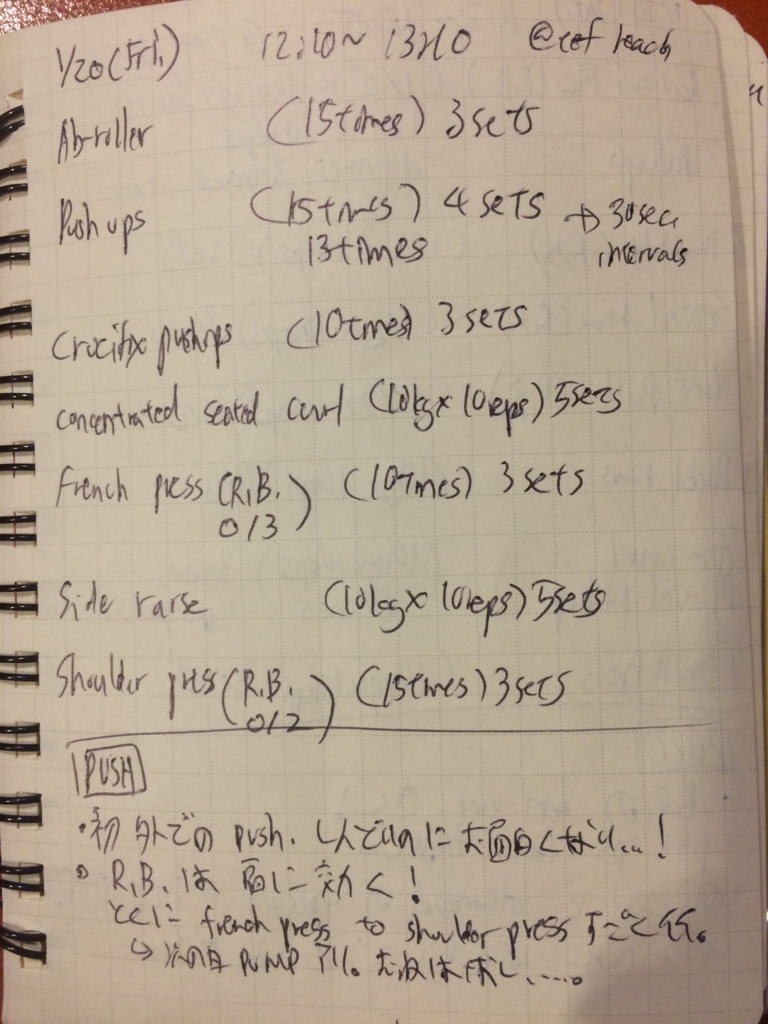 1/20(Fri.) 12:10~ 13:10 @ beach
Ab-roller (15times) 3sets
Push ups (15times) 4 sets → 30sec
13times intervals
Crucifix pushups (10times) 3 sets
concentrated seated curl (10kg× 10reps) 5sets
French press (R.B. 0/3) (10times) 3 sets
Side raise (10kg× 10reps) 5sets
Shoulder press (R.B. 0/2) (15times) 3sets
PUSH
・初 外での push. に 面白く ...!
・R.B.は に 効く!
とくに french press to shoulder press すごく
↳ 次の日 PUMP .....